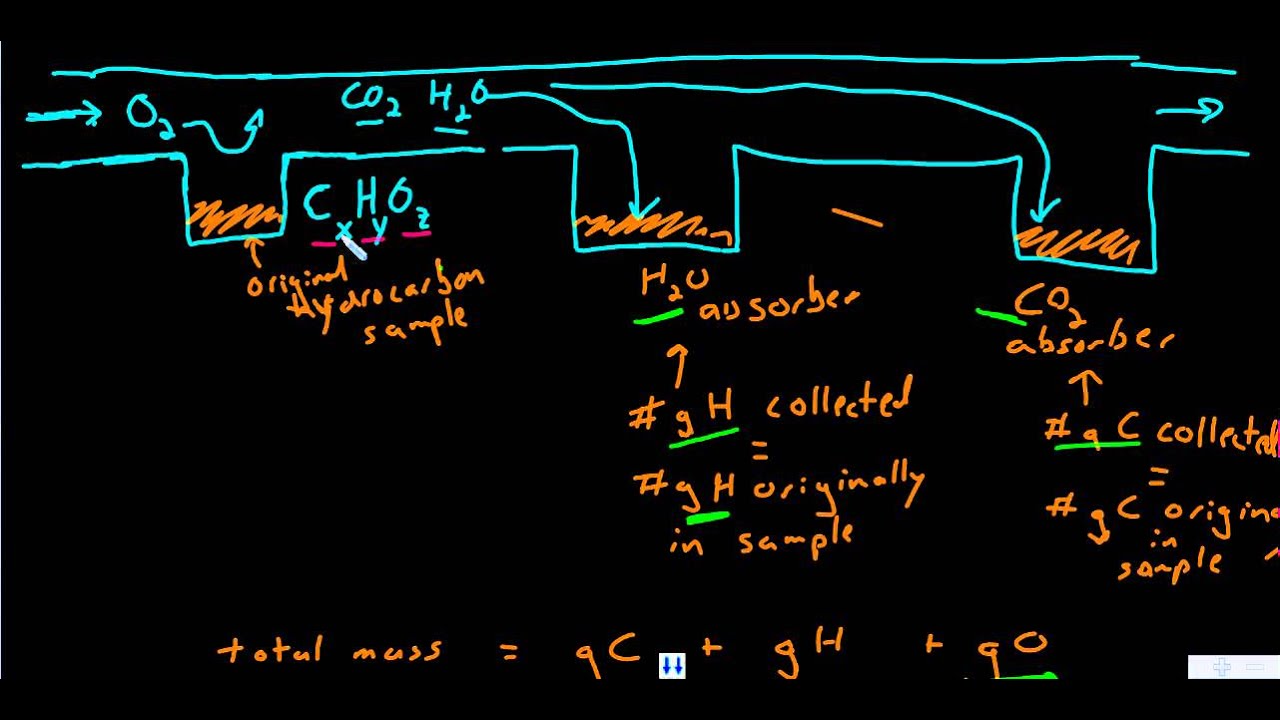 O₂
CO₂ H₂O
CₓHᵧO_z
original
Hydrocarbon
sample
H₂O
absorber
# g H collected
=
# g H originally
in sample
CO₂
absorber
# g C collected
=
# g C origina
in
sample
total mass = gC + gH + gO